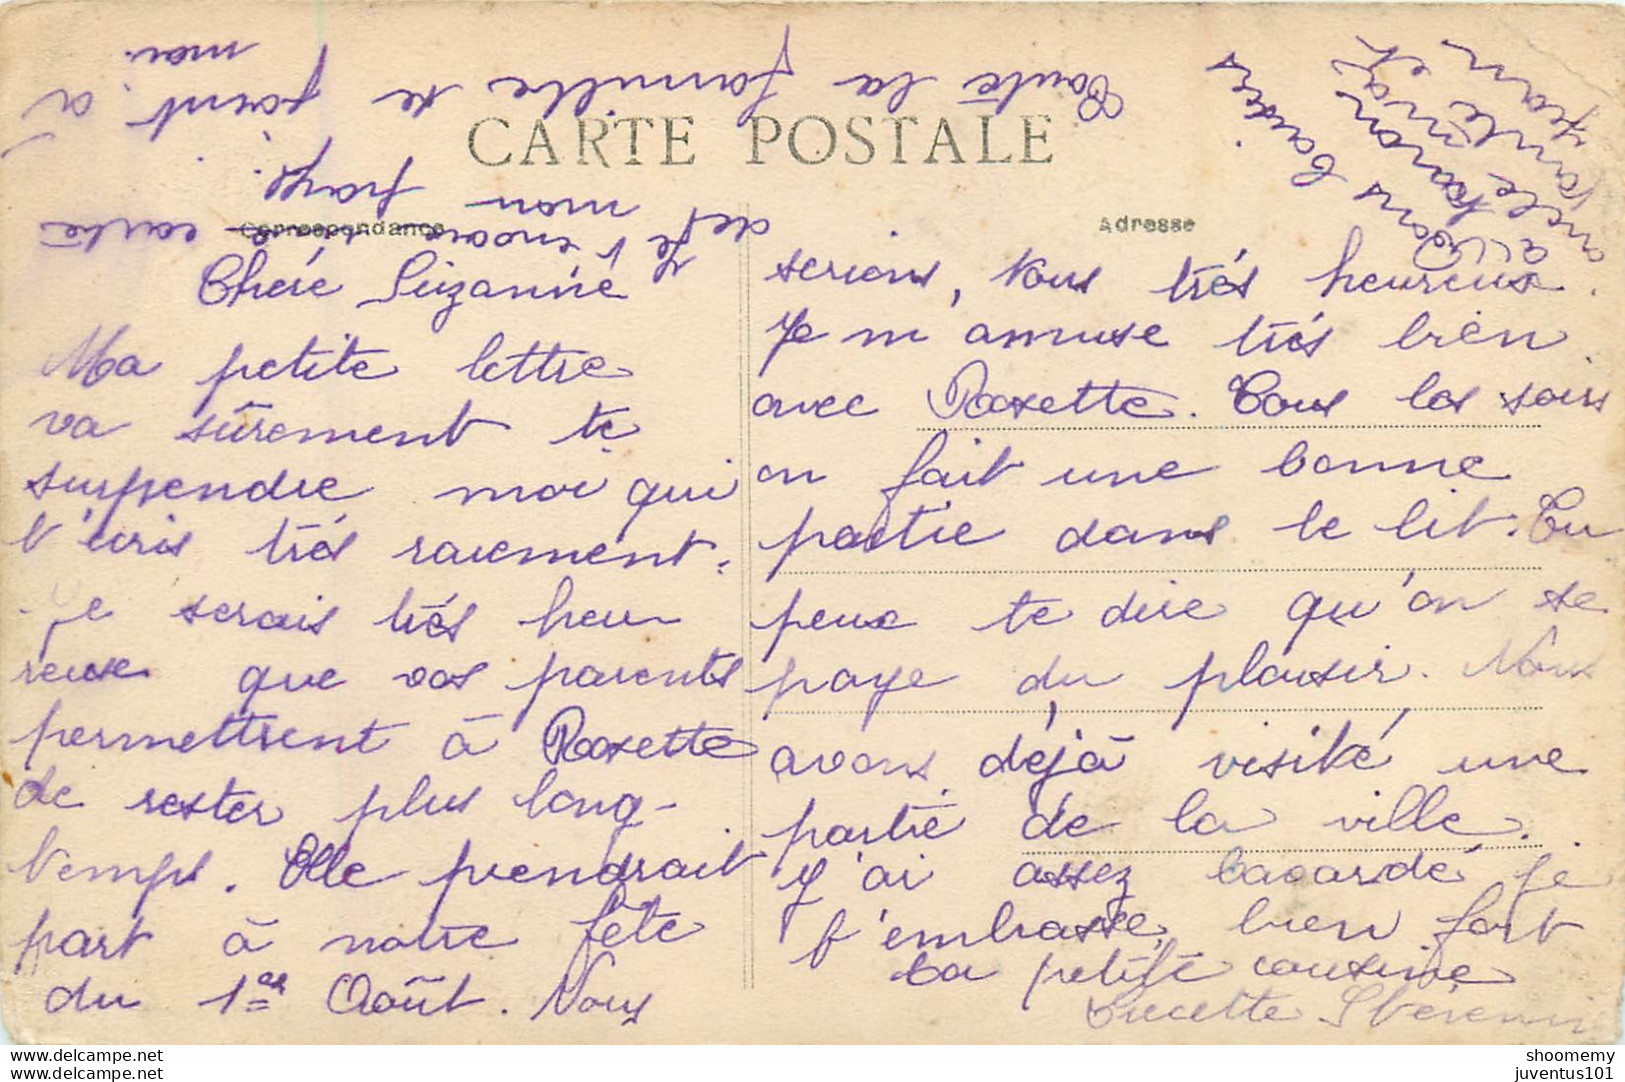 CARTE POSTALE
Correspondance
Adresse
Chére Suzanne
Ma petite lettre
va sûrement te
surprendre moi qui
t'écris trés rarement.
Je serais trés heu
reuse que vos parents
permettrent à Roxette
de rester plus long-
temps. Elle prendrait
part à notre fête
du 1er Août. Nous
serions, tous trés heureux.
Je m'amuse trés bien
avec Roxette. Tous les soirs
on fait une bonne
partie dans le lit. Tu
peux te dire qu'on se
paye du plaisir. Nous
avons déjà visité une
partie de la ville.
J'ai assez bavardé je
t'embrasse bien fort
ta petite cousine
Lucette
Je t'encore une carte
de mon pays.
Toute la famille se joint à
moi.
bons baisers